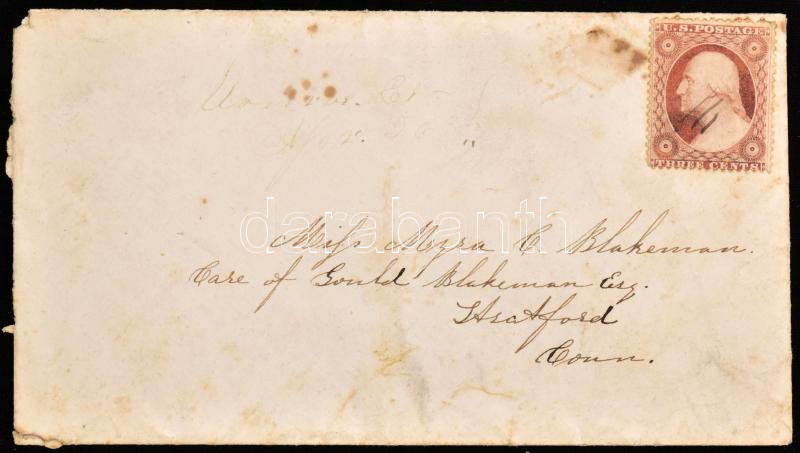 U.S. POSTAGE
THREE CENTS
darabanth
Miss Myra C Blakeman.
Care of Gould Blakeman Esq.
Stratford
Conn.